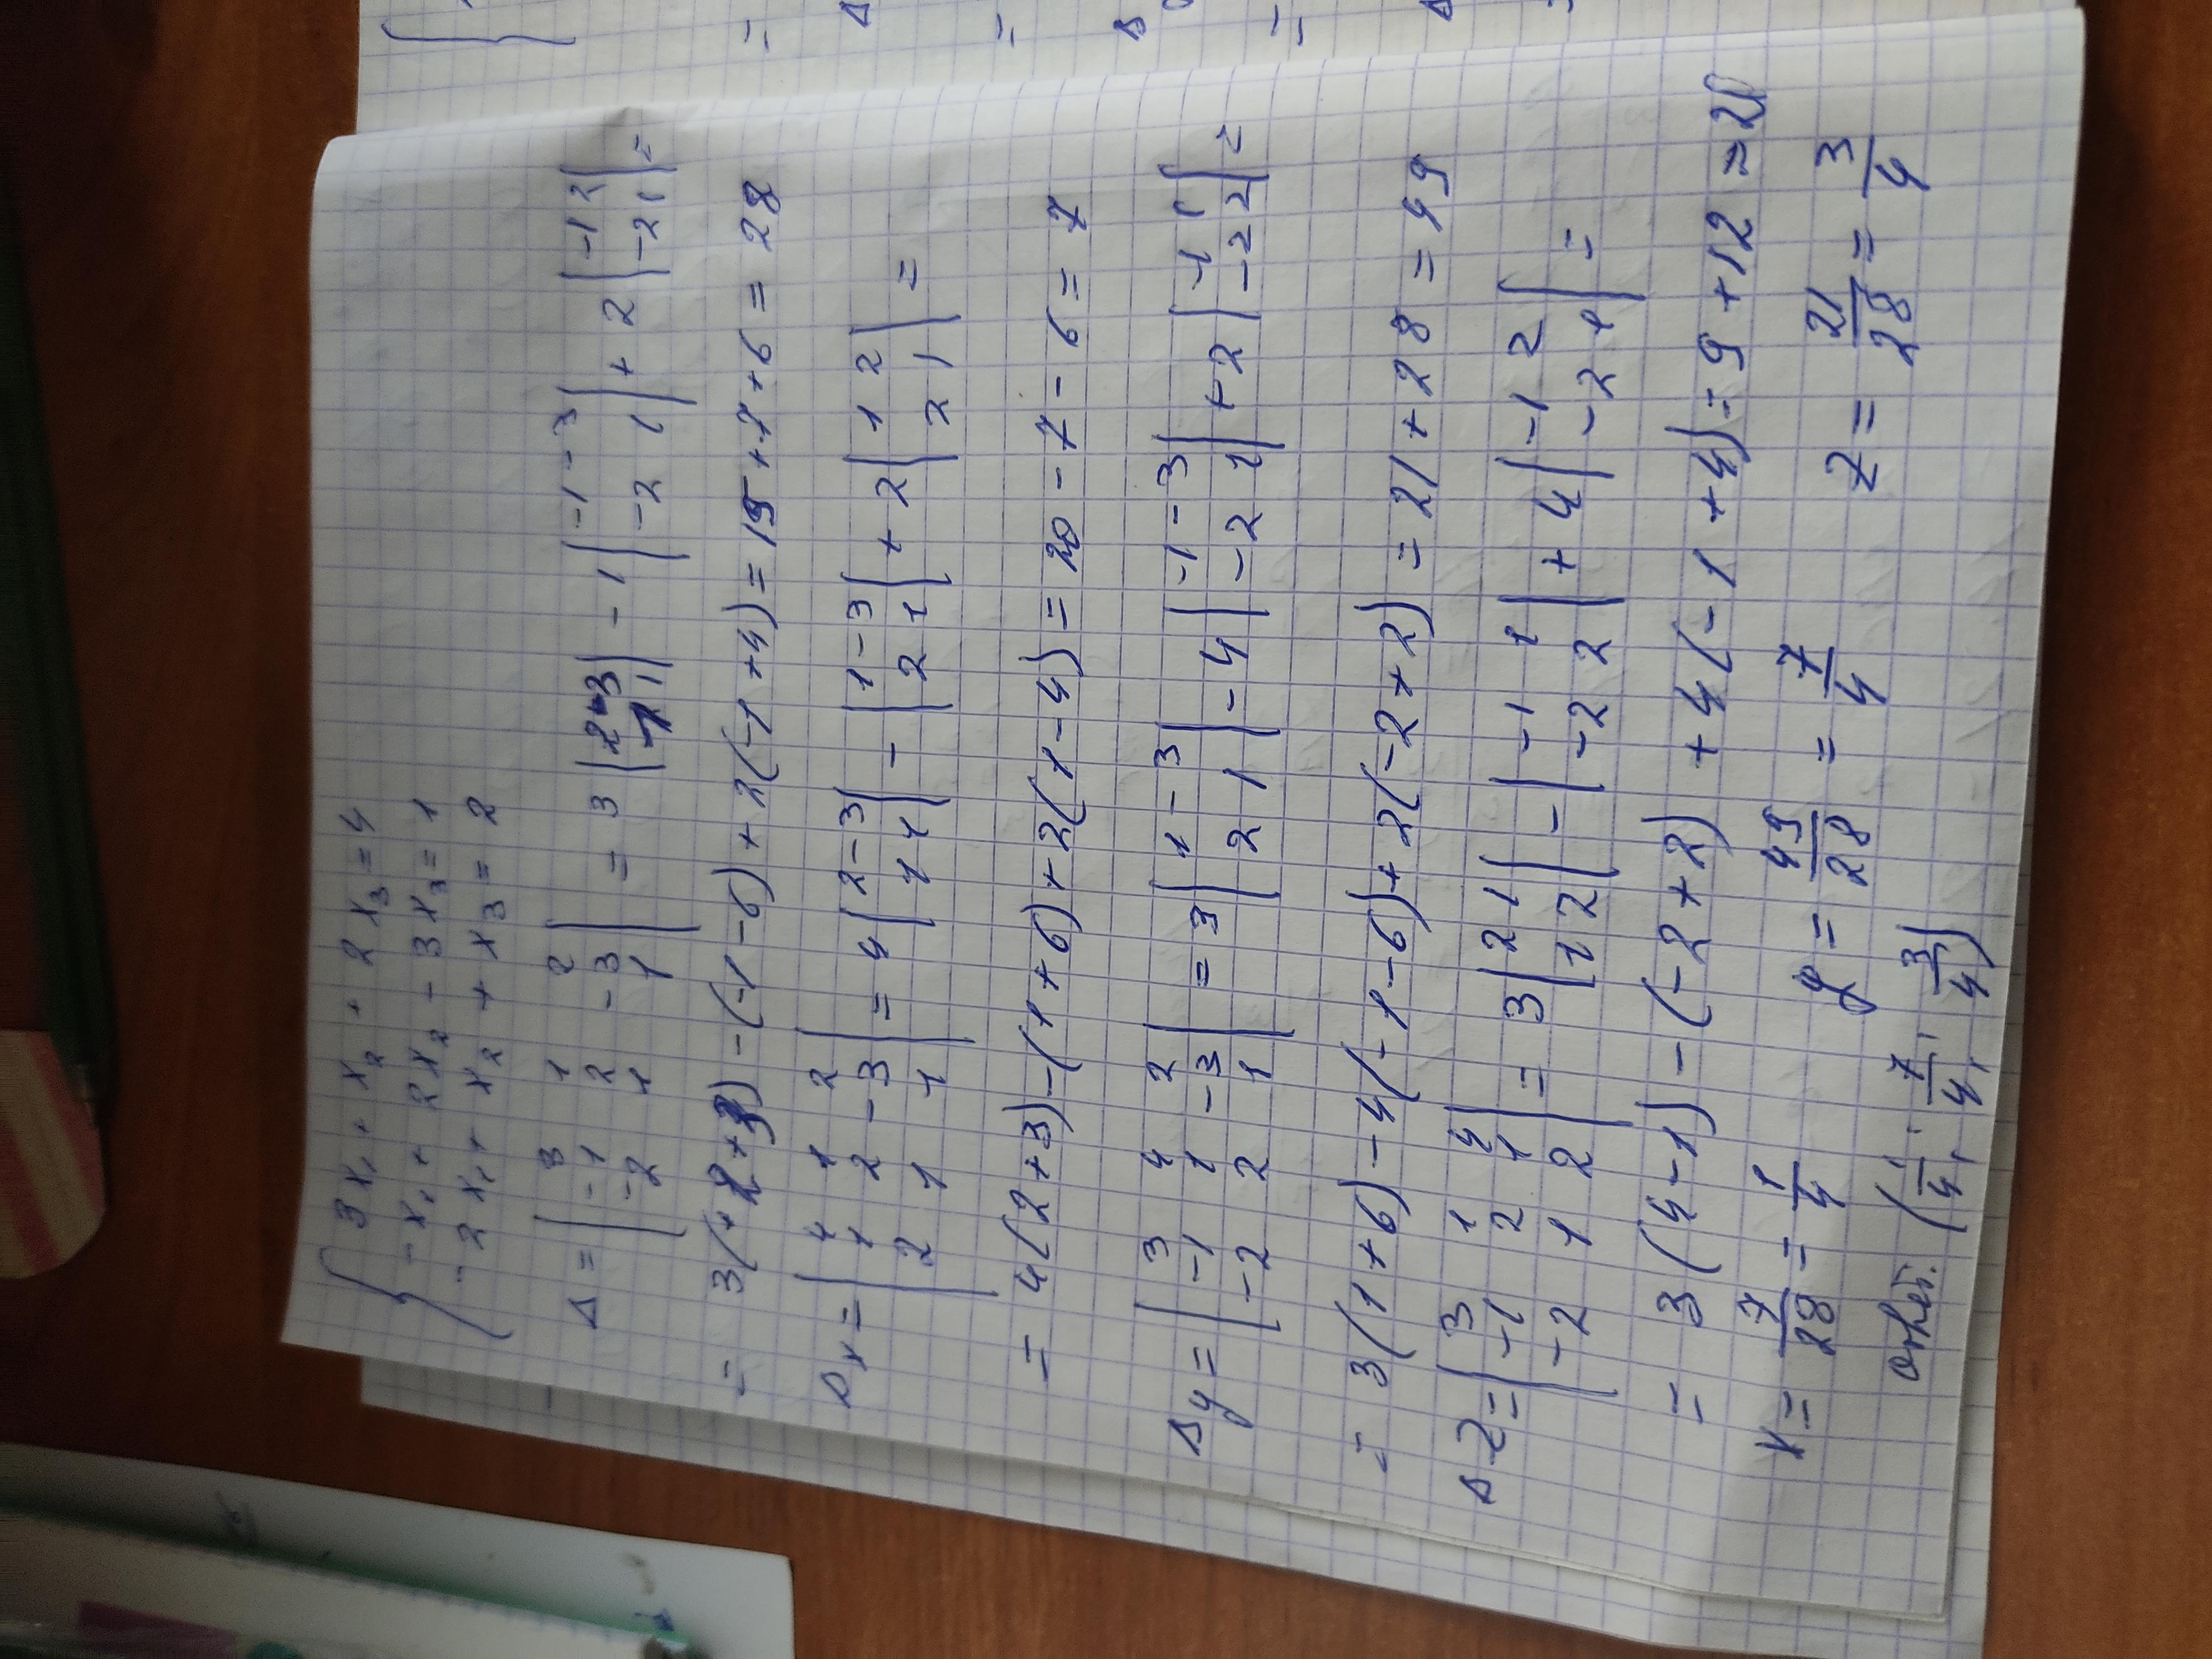 3x₁ + x₂ + 2x₃ = 4
-x₁ + 2x₂ - 3x₃ = 1
-2x₁ + x₂ + x₃ = 2
Δ = | 3 1 2 | = 3 | 2 -3 | - 1 | -1 -3 | + 2 | -1 2 | =
| -1 2 -3 | | 1 1 | | -2 1 | | -2 1 |
| -2 1 1 |
= 3(+2+3) - (-1-6) + 2(-1+4) = 15 + 7 + 6 = 28
Δx = | 4 1 2 | = 4 | 2 -3 | - | 1 -3 | + 2 | 1 2 | =
| 1 2 -3 | | 1 1 | | 2 1 | | 2 1 |
| 2 1 1 |
= 4(2+3) - (1+6) + 2(1-4) = 20 - 7 - 6 = 7
Δy = | 3 4 2 | = 3 | 1 -3 | - 4 | -1 -3 | + 2 | -1 1 | =
| -1 1 -3 | | 2 1 | | -2 1 | | -2 2 |
| -2 2 1 |
= 3(1+6) - 4(-1-6) + 2(-2+2) = 21 + 28 = 49
Δz = | 3 1 4 | = 3 | 2 1 | - | -1 1 | + 4 | -1 2 | =
| -1 2 1 | | 1 2 | | -2 2 | | -2 1 |
| -2 1 2 |
= 3(4-1) - (-2+2) + 4(-1+4) = 9 + 12 = 21
x = 7/28 = 1/4 y = 49/28 = 7/4 z = 21/28 = 3/4
ответ. (1/4; 7/4; 3/4)